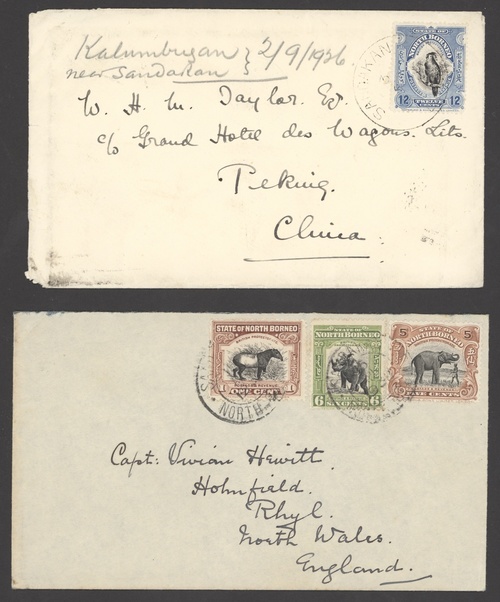 Kalumbugan } 2/9/1926
near Sandakan
SANDAKAN
STATE OF
NORTH BORNEO
12 12
TWELVE
CENTS
W. H. M. Taylor Esq.
c/o Grand Hotel des Wagons. Lits.
Peking.
China.
STATE OF NORTH BORNEO
BRITISH PROTECTORATE
1 1
ONE CENT
NORTH
STATE OF
NORTH BORNEO
6 6
SIX CENTS
5 5
STATE OF
NORTH BORNEO
FIVE CENTS
Capt: Vivian Hewitt.
Holmfield.
Rhyl.
North Wales.
England.